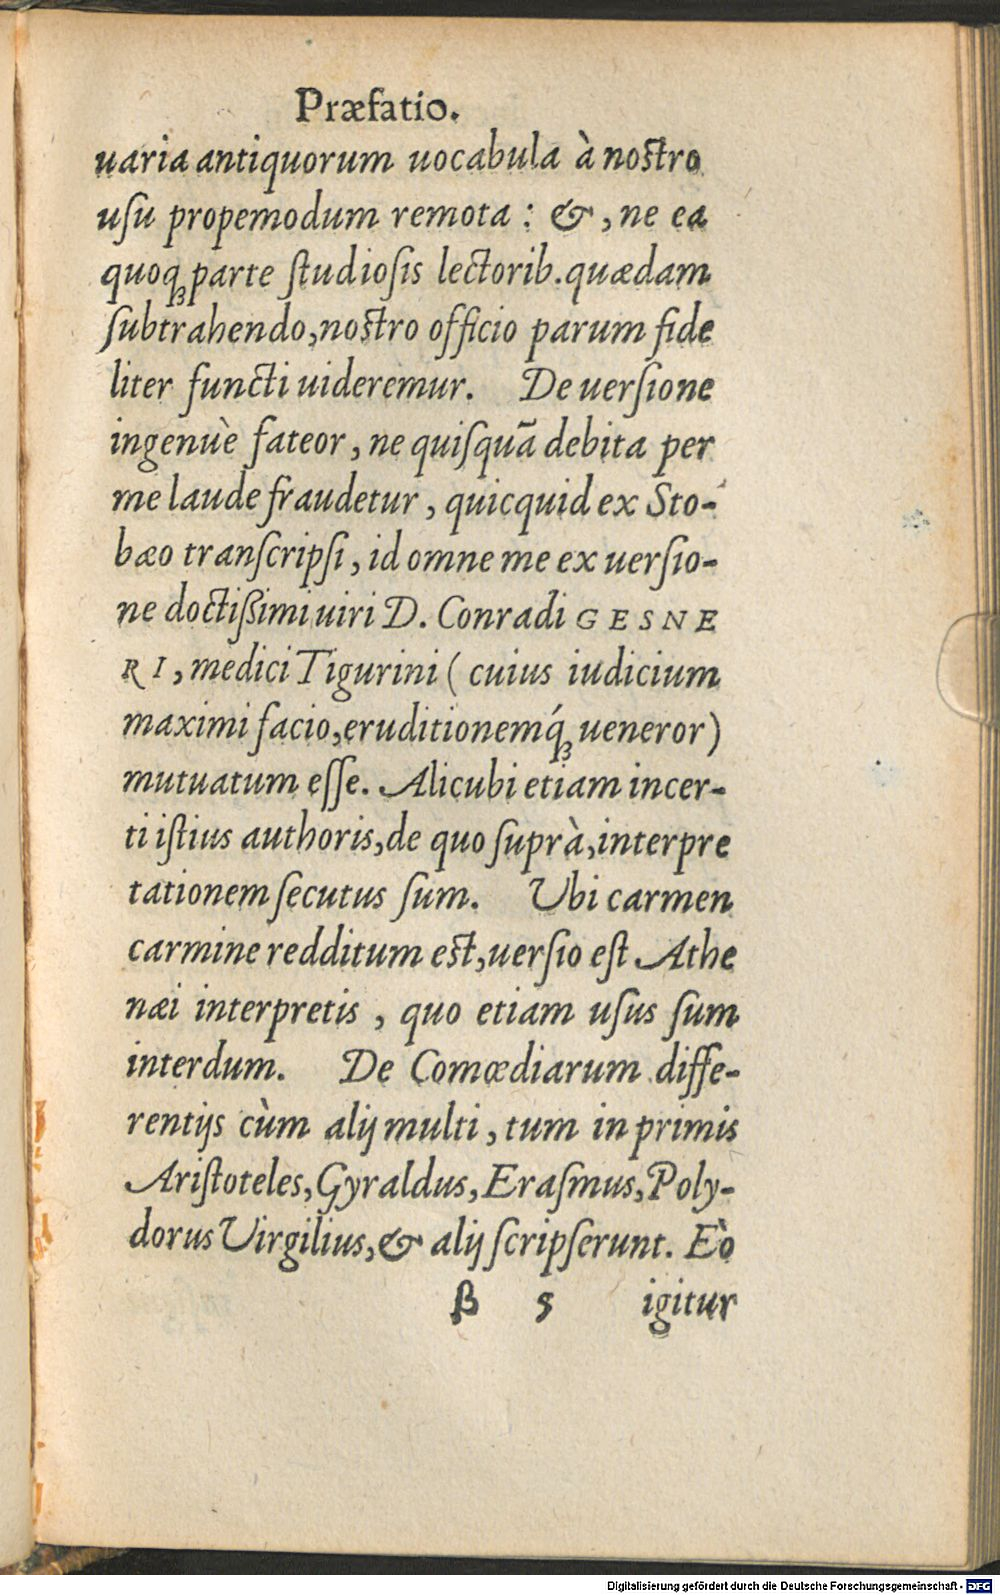 Præfatio.
uaria antiquorum uocabula à nostro
usu propemodum remota : & , ne ea
quoq; parte studiosis lectorib. quædam
subtrahendo, nostro officio parum fide
liter functi uideremur. De uersione
ingenuè fateor, ne quisquã debita per
me laude fraudetur, quicquid ex Sto-
bæo transcripsi, id omne me ex uersio-
ne doctißimi uiri D. Conradi GESNE
RI, medici Tigurini ( cuius iudicium
maximi facio, eruditionemq́; ueneror)
mutuatum esse. Alicubi etiam incer-
ti istius authoris, de quo suprà, interpre
tationem secutus sum. Ubi carmen
carmine redditum est, uersio est Athe
næi interpretis , quo etiam usus sum
interdum. De Comœdiarum diffe-
rentijs cùm alij multi, tum in primis
Aristoteles, Gyraldus, Erasmus, Poly-
dorus Virgilius, & alij scripserunt. Eò
β 5 igitur
Digitalisierung gefördert durch die Deutsche Forschungsgemeinschaft - DFG